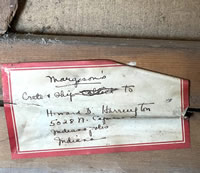 Margison's
Crate & Ship to
Howard B. Herrington
5028 N.
Indianapolis
Indiana